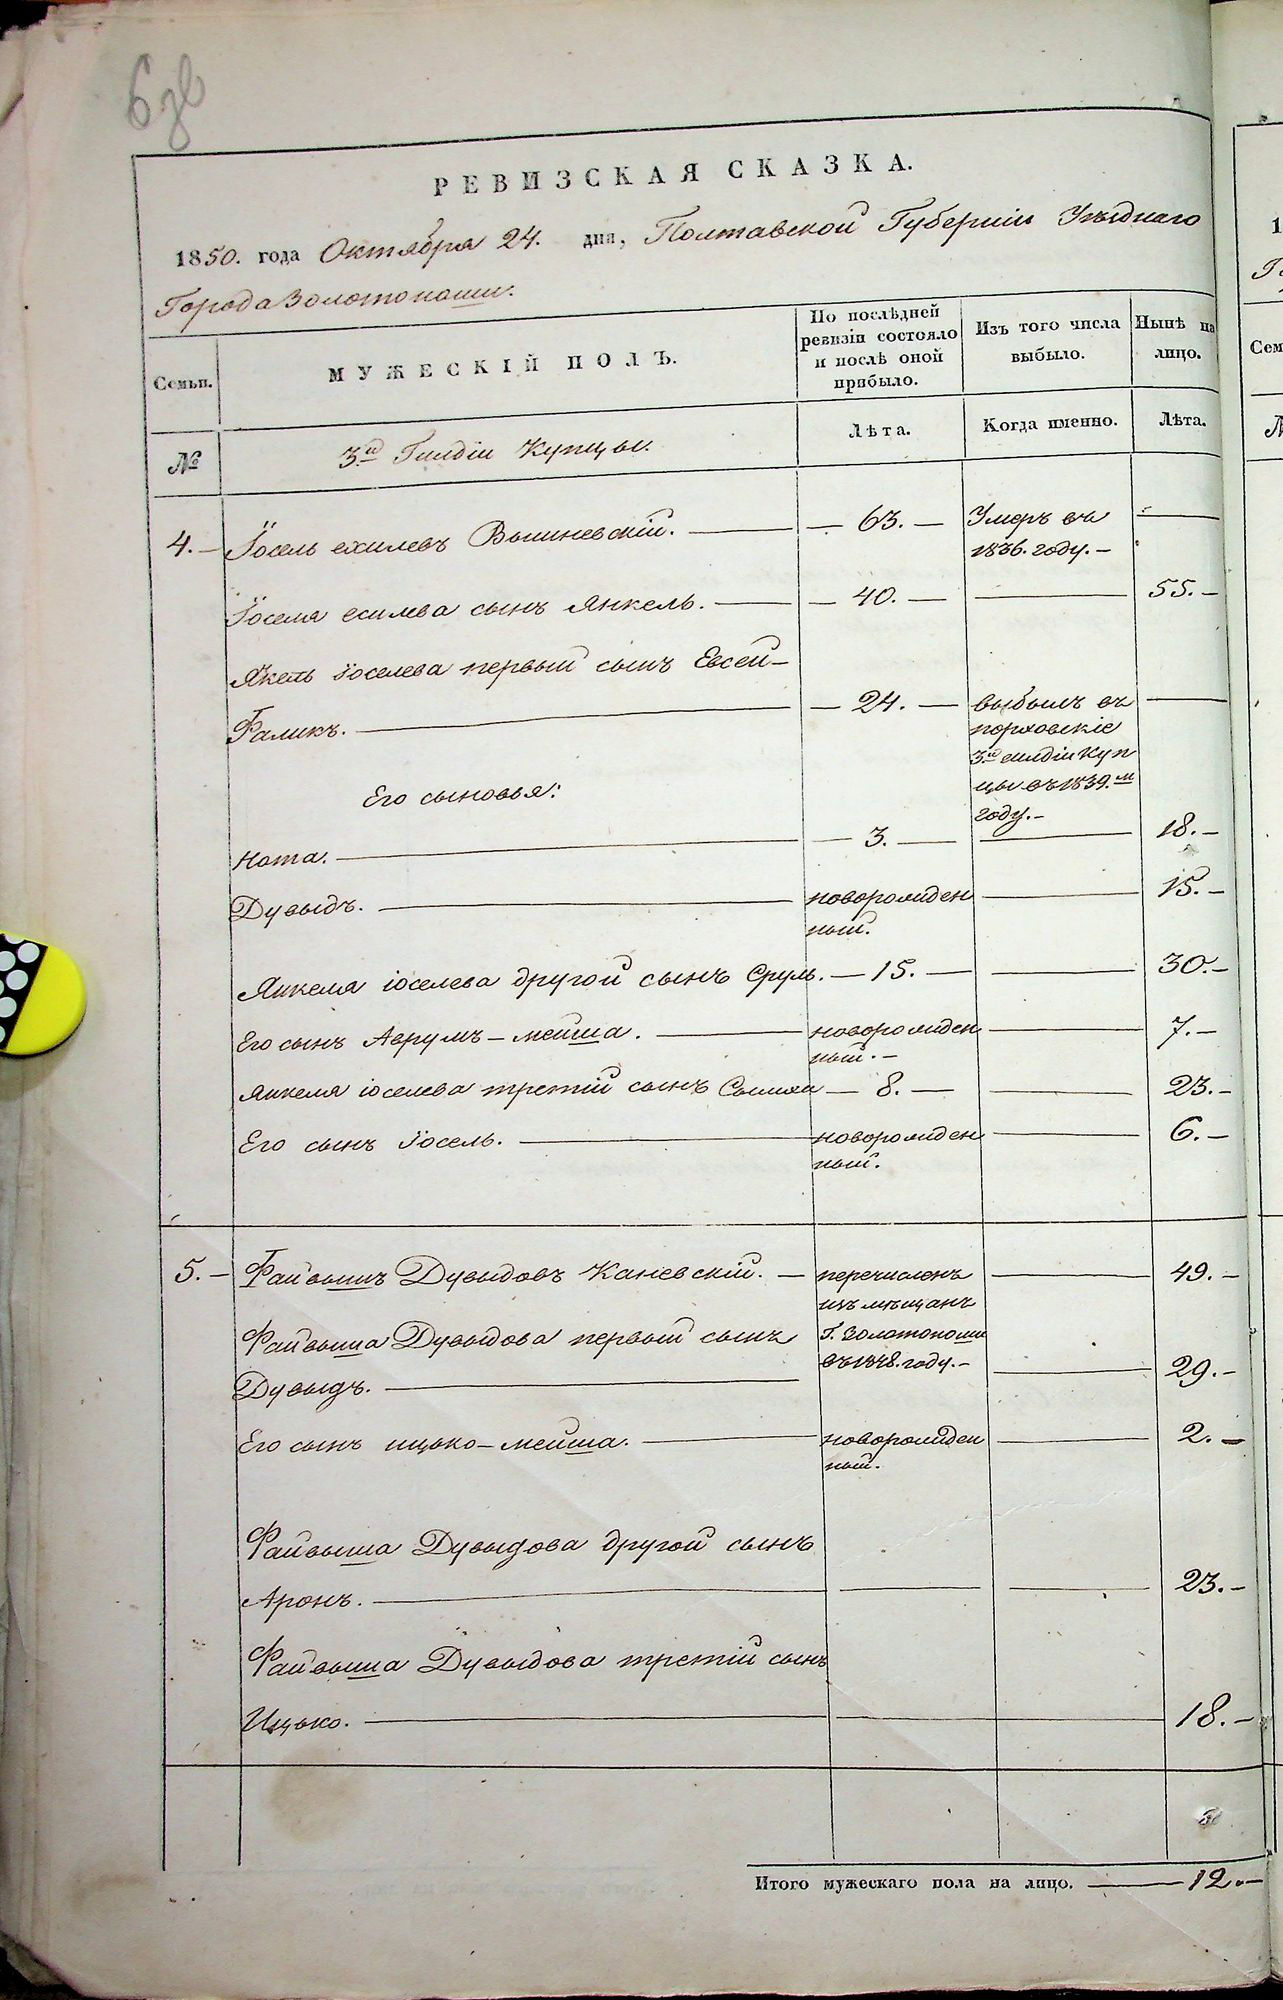 6 зв
РЕВИЗСКАЯ СКАЗКА.
1850. года Октября 24. дня, Полтавской Губерніи Уѣзднаго
Города Золотоноши.
Семьи.
МУЖЕСКІЙ ПОЛЪ.
По послѣдней
ревизіи состояло
и послѣ оной
прибыло.
Изъ того числа
выбыло.
Нынѣ на
лицо.
№
3й Гилдіи Купцы.
Лѣта.
Когда именно.
Лѣта.
4.— Іосель ехилевъ Вышневскій. — 63. — Умеръ въ —
1836. году.—
Іоселя есилева сынъ Янкель. — 40. — — 55.—
Якель іоселева первый сынъ Евсей—
Фаликъ. — 24. — выбылъ въ —
порховскіе
3й гилдіи Куп
цы въ 1839.м
году.—
Его сыновья:
Нота. — 3. — — 18.—
Дувыдъ. — новорожден — 15.—
ный.
Янкеля іоселева другой сынъ Сруль. — 15. — — 30.—
Его сынъ Аврумъ—мейша. — новорожден — 7.—
ный.—
Янкеля іоселева третій сынъ — 8. — — 23.—
Его сынъ іосель. — новорожден — 6.—
ный.
5.— Файвышъ Дувыдовъ Каневскій. — перечисленъ — 49.—
изъ мѣщанъ
Файвыша Дувыдова первый сынъ г. Золотоноши
въ 1848. году.—
Дувыдъ. — — 29.—
Его сынъ ицько—мейша. — новорожден — 2.—
ный.
Файвыша Дувыдова другой сынъ
Аронъ. — — — 23.—
Файвыша Дувыдова третій сынъ
Ицько. — — — 18.—
Итого мужескаго пола на лицо. — 12.—